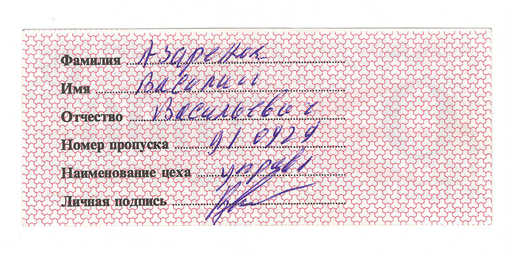 Фамилия Азаренок
Имя Василий
Отчество Васильевич
Номер пропуска 91 0929
Наименование цеха
Личная подпись